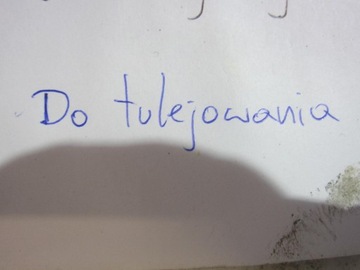 Do tulejowania